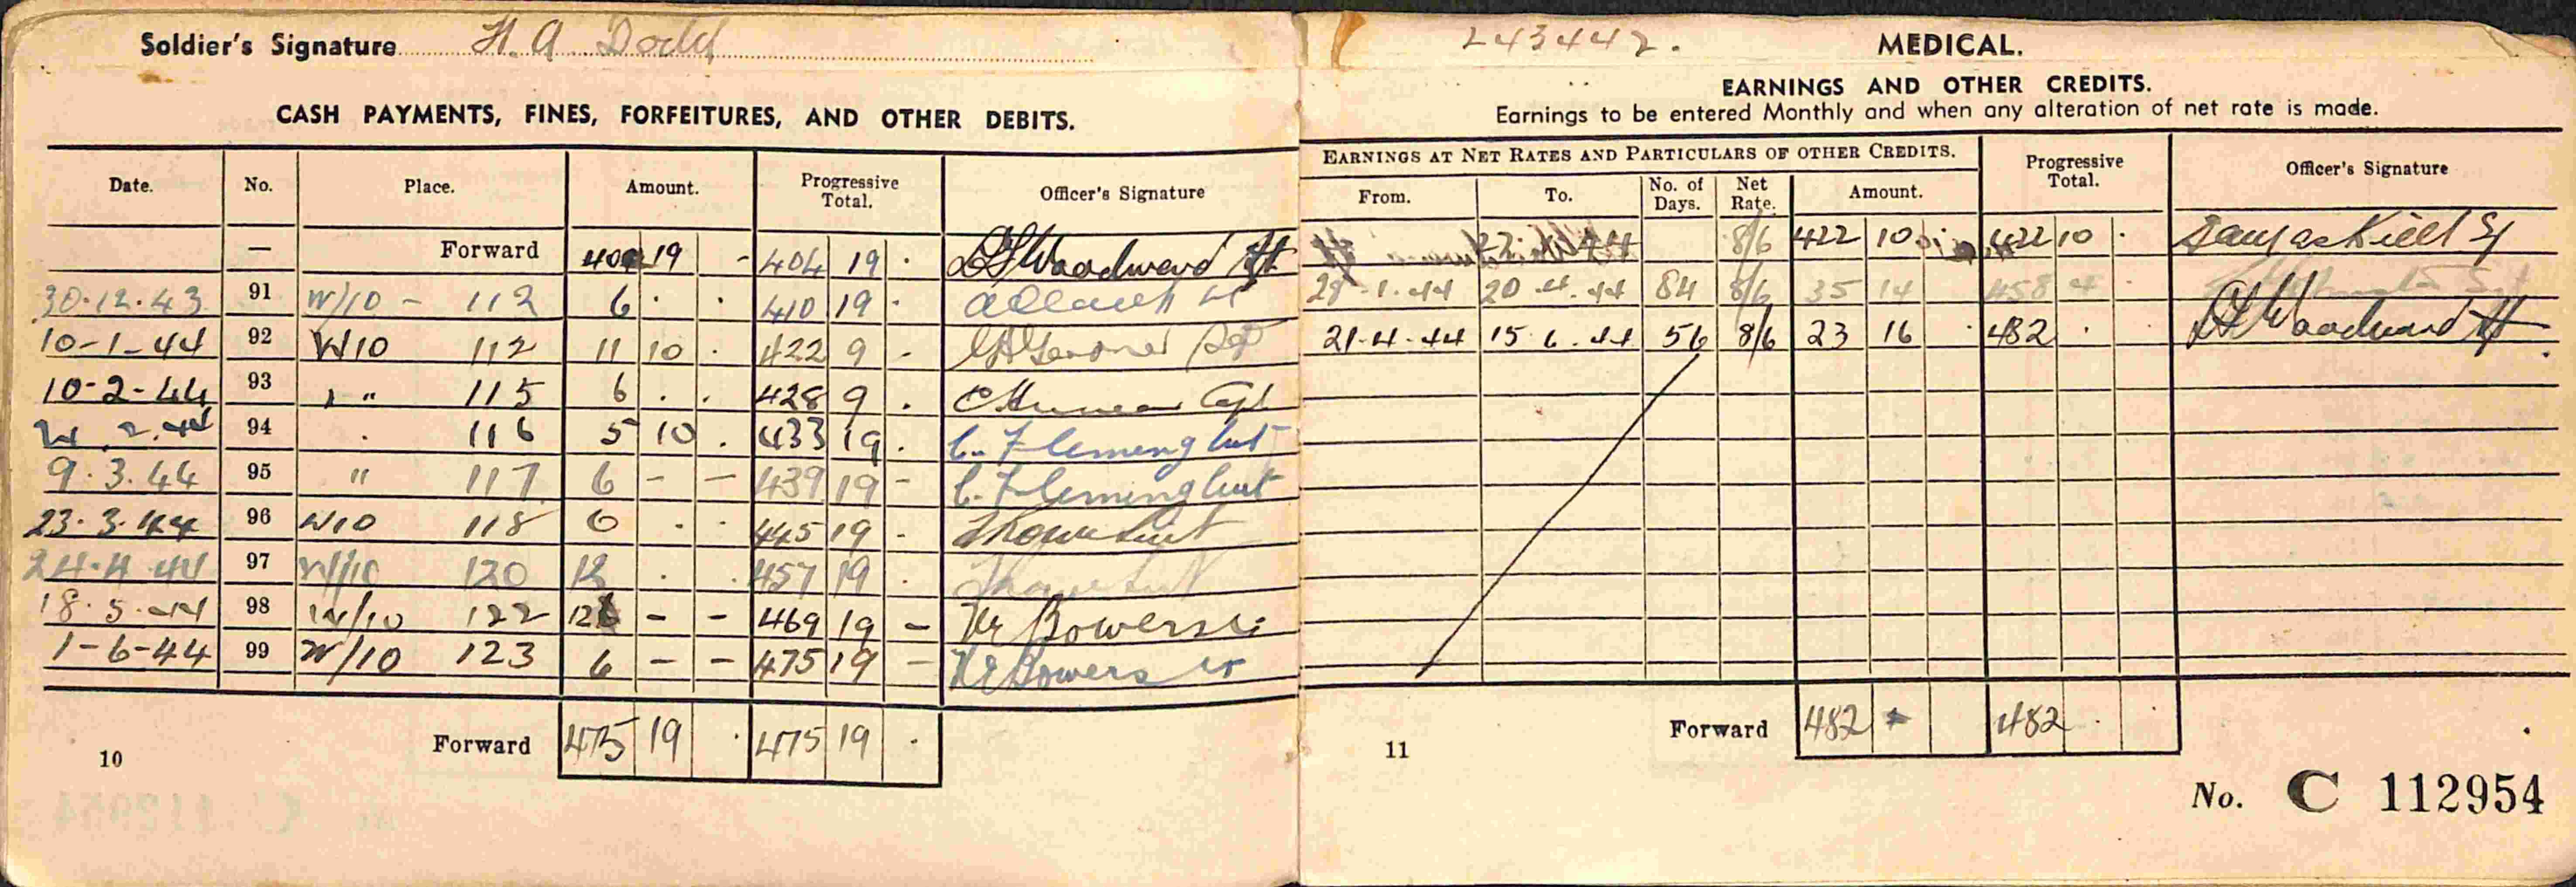 Soldier's Signature H. A Dodd
CASH PAYMENTS, FINES, FORFEITURES, AND OTHER DEBITS.
Date. No. Place. Amount. Progressive Total. Officer's Signature
— Forward 19 - 404 19 · Woodward Lt
30·12·43 91 W/10 - 112 6 · · 410 19 ·
10-1-44 92 W10 112 11 10 · 422 9 -
10-2-44 93 " 115 6 · · 428 9 · Capt
2.44 94 · 116 5 10 · 433 19 · C. Fleming Lieut
9·3·44 95 " 117 6 - - 439 19 - C. Fleming Lieut
23·3·44 96 W10 118 6 · · 445 19 - Lieut
24·4·44 97 W/10 120 12 · · 457 19 · Lieut
18·5·44 98 W/10 122 12 - - 469 19 - Bowers Lt
1-6-44 99 W/10 123 6 - - 475 19 - Bowers Lt
Forward 475 19 · 475 19 ·
10
243442. MEDICAL.
EARNINGS AND OTHER CREDITS.
Earnings to be entered Monthly and when any alteration of net rate is made.
EARNINGS AT NET RATES AND PARTICULARS OF OTHER CREDITS. Progressive Total. Officer's Signature
From. To. No. of Days. Net Rate. Amount.
27 44 8/6 422 10 422 10 ·
28·1·44 20·4·44 84 8/6 35 14 458 4 · Sgt
21-4-44 15·6·44 56 8/6 23 16 · 482 · · Woodward Lt
Forward 482 482 ·
11
No. C 112954